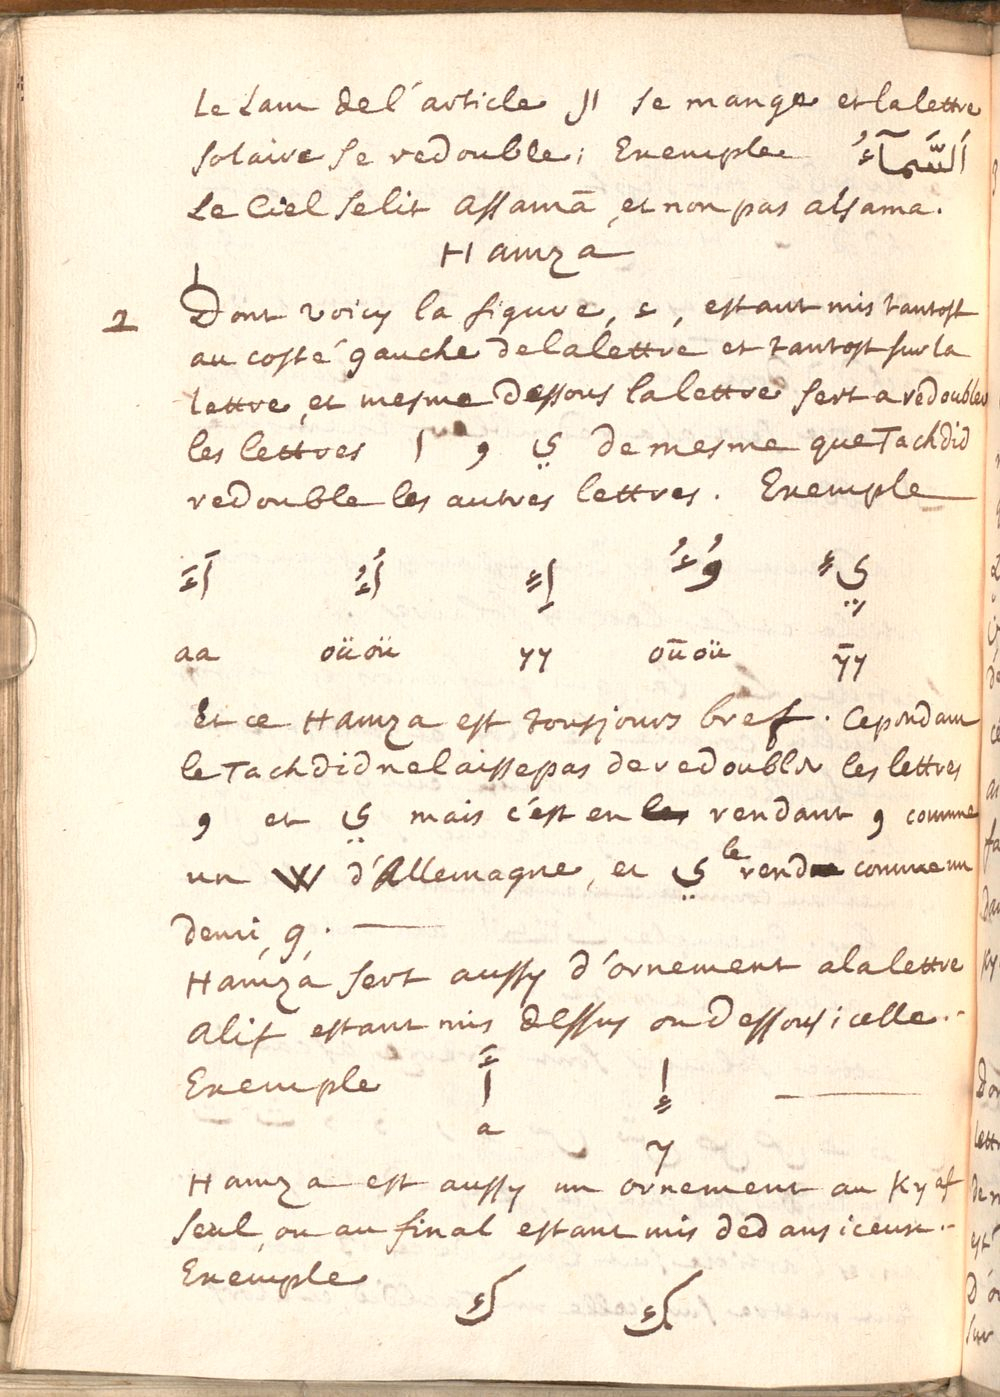 Le Lam de l'article ال se mange et la lettre
solaire se redouble; Exemple اَلسَّمَآءُ
Le Ciel se lit assamā, et non pas alsama.
Hamza
2 Dont voicy la figure, ء, estant mis tantost
au costé gauche de la lettre et tantost sur la
lettre, et mesme dessous la lettre sert a redoubler
les lettres ا و ي de mesme que Tachdid
redouble les autres lettres. Exemple
اَءَ اُءُ اِءِ وُءُ يِءِ
aa oüoü yy oūoü ȳy
Et ce Hamza est tousjours bref. Cependant
le Tachdid ne laisse pas de redoubler les lettres
و et ي mais c'est en rendant و comme
un W d'Allemagne, et ي le rend comme un
demi, g.
Hamza sert aussy d'ornement a la lettre
Alif estant mis dessus ou dessous icelle.
Exemple أَ إِ
a y
Hamza est aussy un ornement au Kyaf
seul, ou au final estant mis dedans iceux.
Exemple ك ك